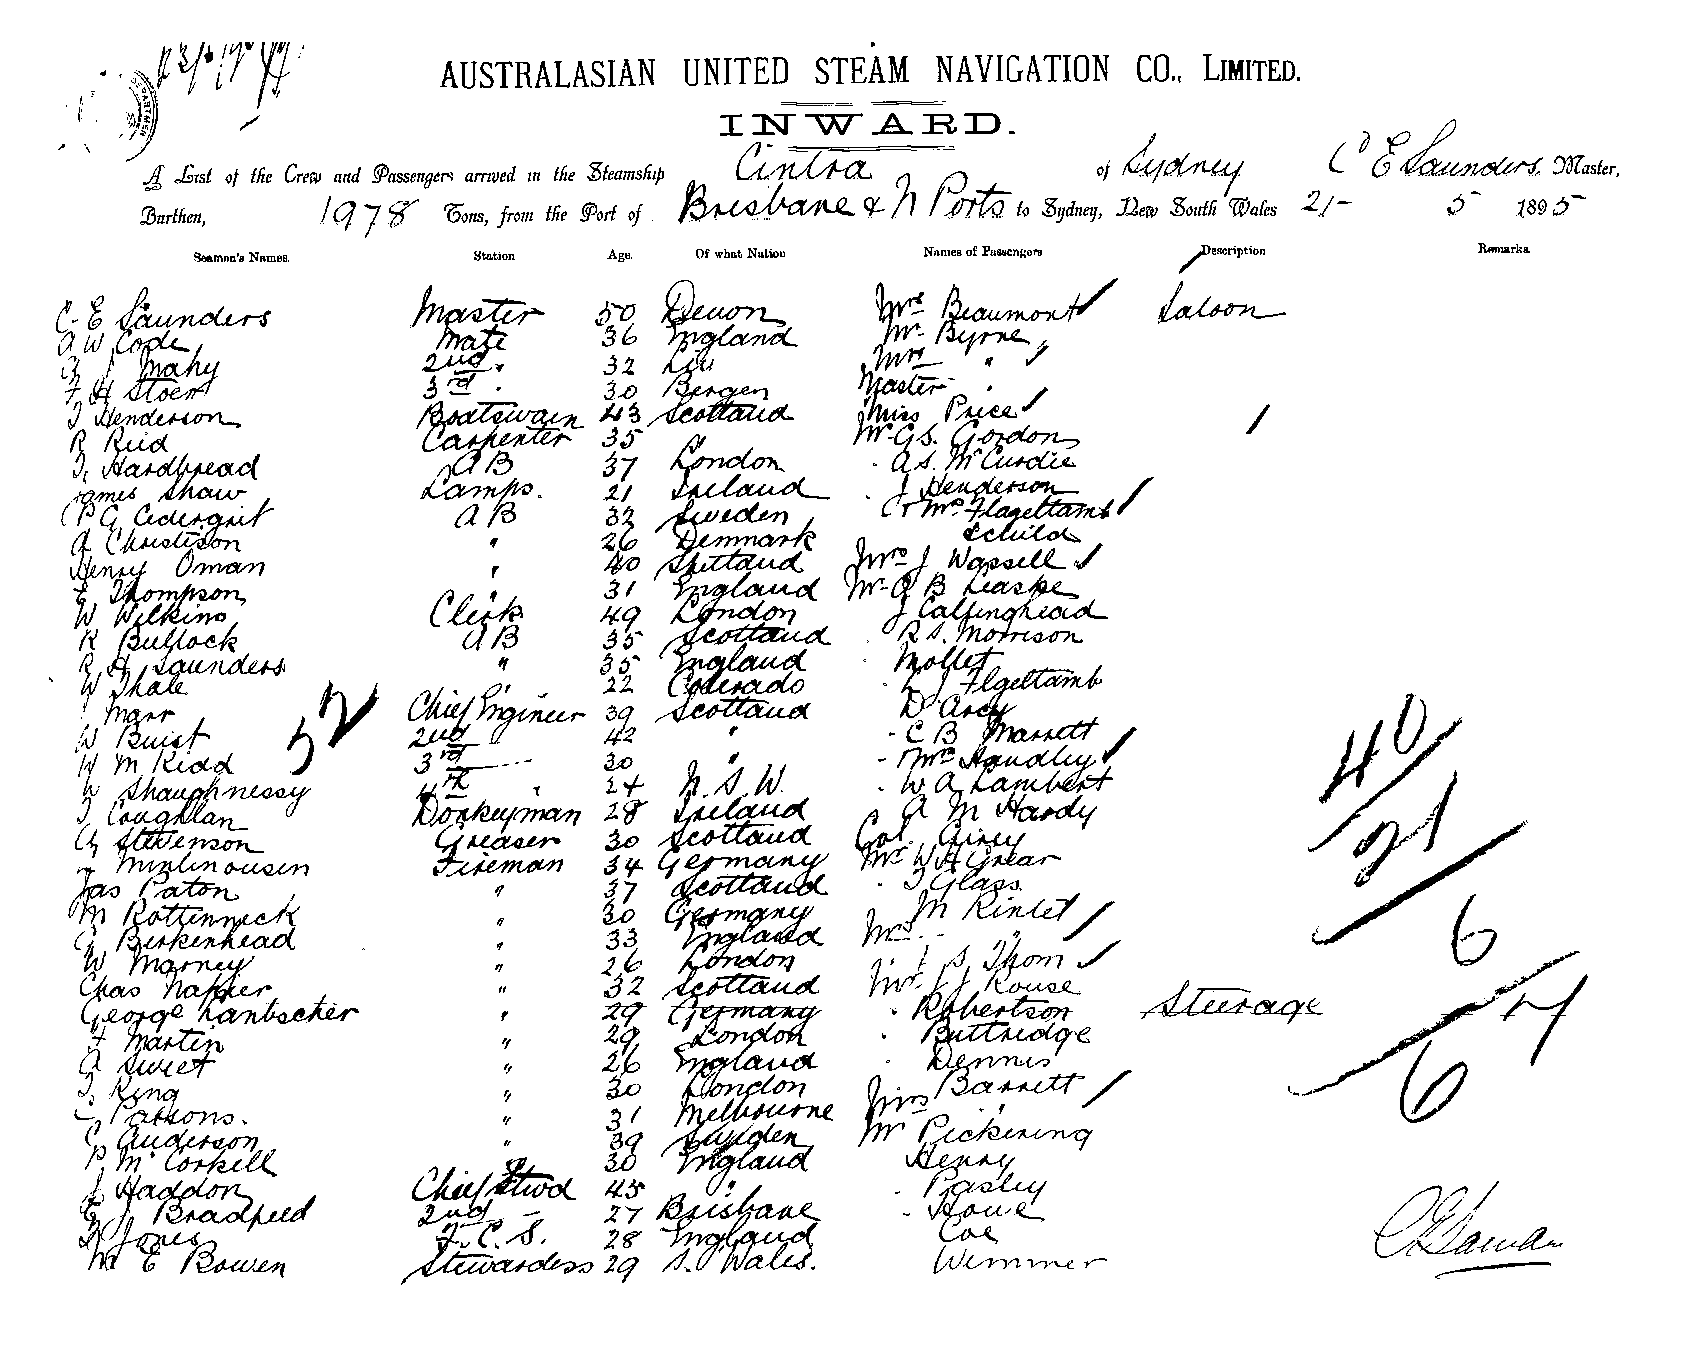 AUSTRALASIAN UNITED STEAM NAVIGATION CO., LIMITED.
INWARD.
A List of the Crew and Passengers arrived in the Steamship Cintra of Sydney C E Saunders, Master,
Burthen, 1978 Tons, from the Port of Brisbane & N Ports to Sydney, New South Wales 21- 5 1895
Seamen's Names. Station Age. Of what Nation Names of Passengers Description Remarks
C. E Saunders Master 50 Devon Mrs Beaumont Saloon
A W Cope Mate 36 England Mr. Byrne
Mahy 2nd " 32 Mrs "
F H Stoer 3rd . 30 Bergen Master "
J Henderson Boatswain 43 Scotland Miss Price
R Reid Carpenter 35 Mr G S. Gordon
T. Hardbread A B 37 London . A S. McCurdie
James Shaw Lamps. 21 Ireland . J Henderson
P G Cedergrit A B 32 Sweden Mrs Flageltamb
A Christison " 26 Denmark & child
Henry Oman " 40 Shetland Mrs J Wassell
E Thompson " 31 England Mr A B Leaske
W Wilkins Clerk 49 London J Calfinghead
R Bullock A B 35 Scotland . R S. Morrison
R H Saunders " 35 England . Mollet
W Thale " 22 Colerado . L J Flgeltamb
Marr Chief Engineer 39 Scotland D'Arcy
W Buist 2nd 42 " . C B Marrett
W M Kidd 3rd 30 " . Mrs Handley
W Shaughnessy 4th " 24 N. S. W. . W A Lambert
J Coughlan Donkeyman 28 Ireland A M Hardy
Stevenson Greaser 30 Scotland Col. Airey
Fireman 34 Germany Mr W H Grear
Jas Paton " 37 Scotland . J Glass
M Rottennick " 30 Germany M Rintel
G Birkenhead " 33 England Mrs "
W Marney " 26 London J S Thom
Chas Napier " 32 Scotland Mr. J J Rouse
George Lantscher " 29 Germany . Robertson Steerage
F Martin " 29 London . Buttridge
A Sweet " 26 England . Dennis
J. King " 30 London . Barrett
Parsons. " 31 Melbourne Mrs "
C Anderson " 39 Sweden Mr Pickering
P McCorkell " 30 England Henry
J Haddon Chief Stwd 45 " . Pasley
E J Bradfield 2nd - 27 Brisbane . Howe
H Jones F. C. S. 28 England Coe
M E Bowen Stewardess 29 S. Wales. Wimmer
40
21
6
67